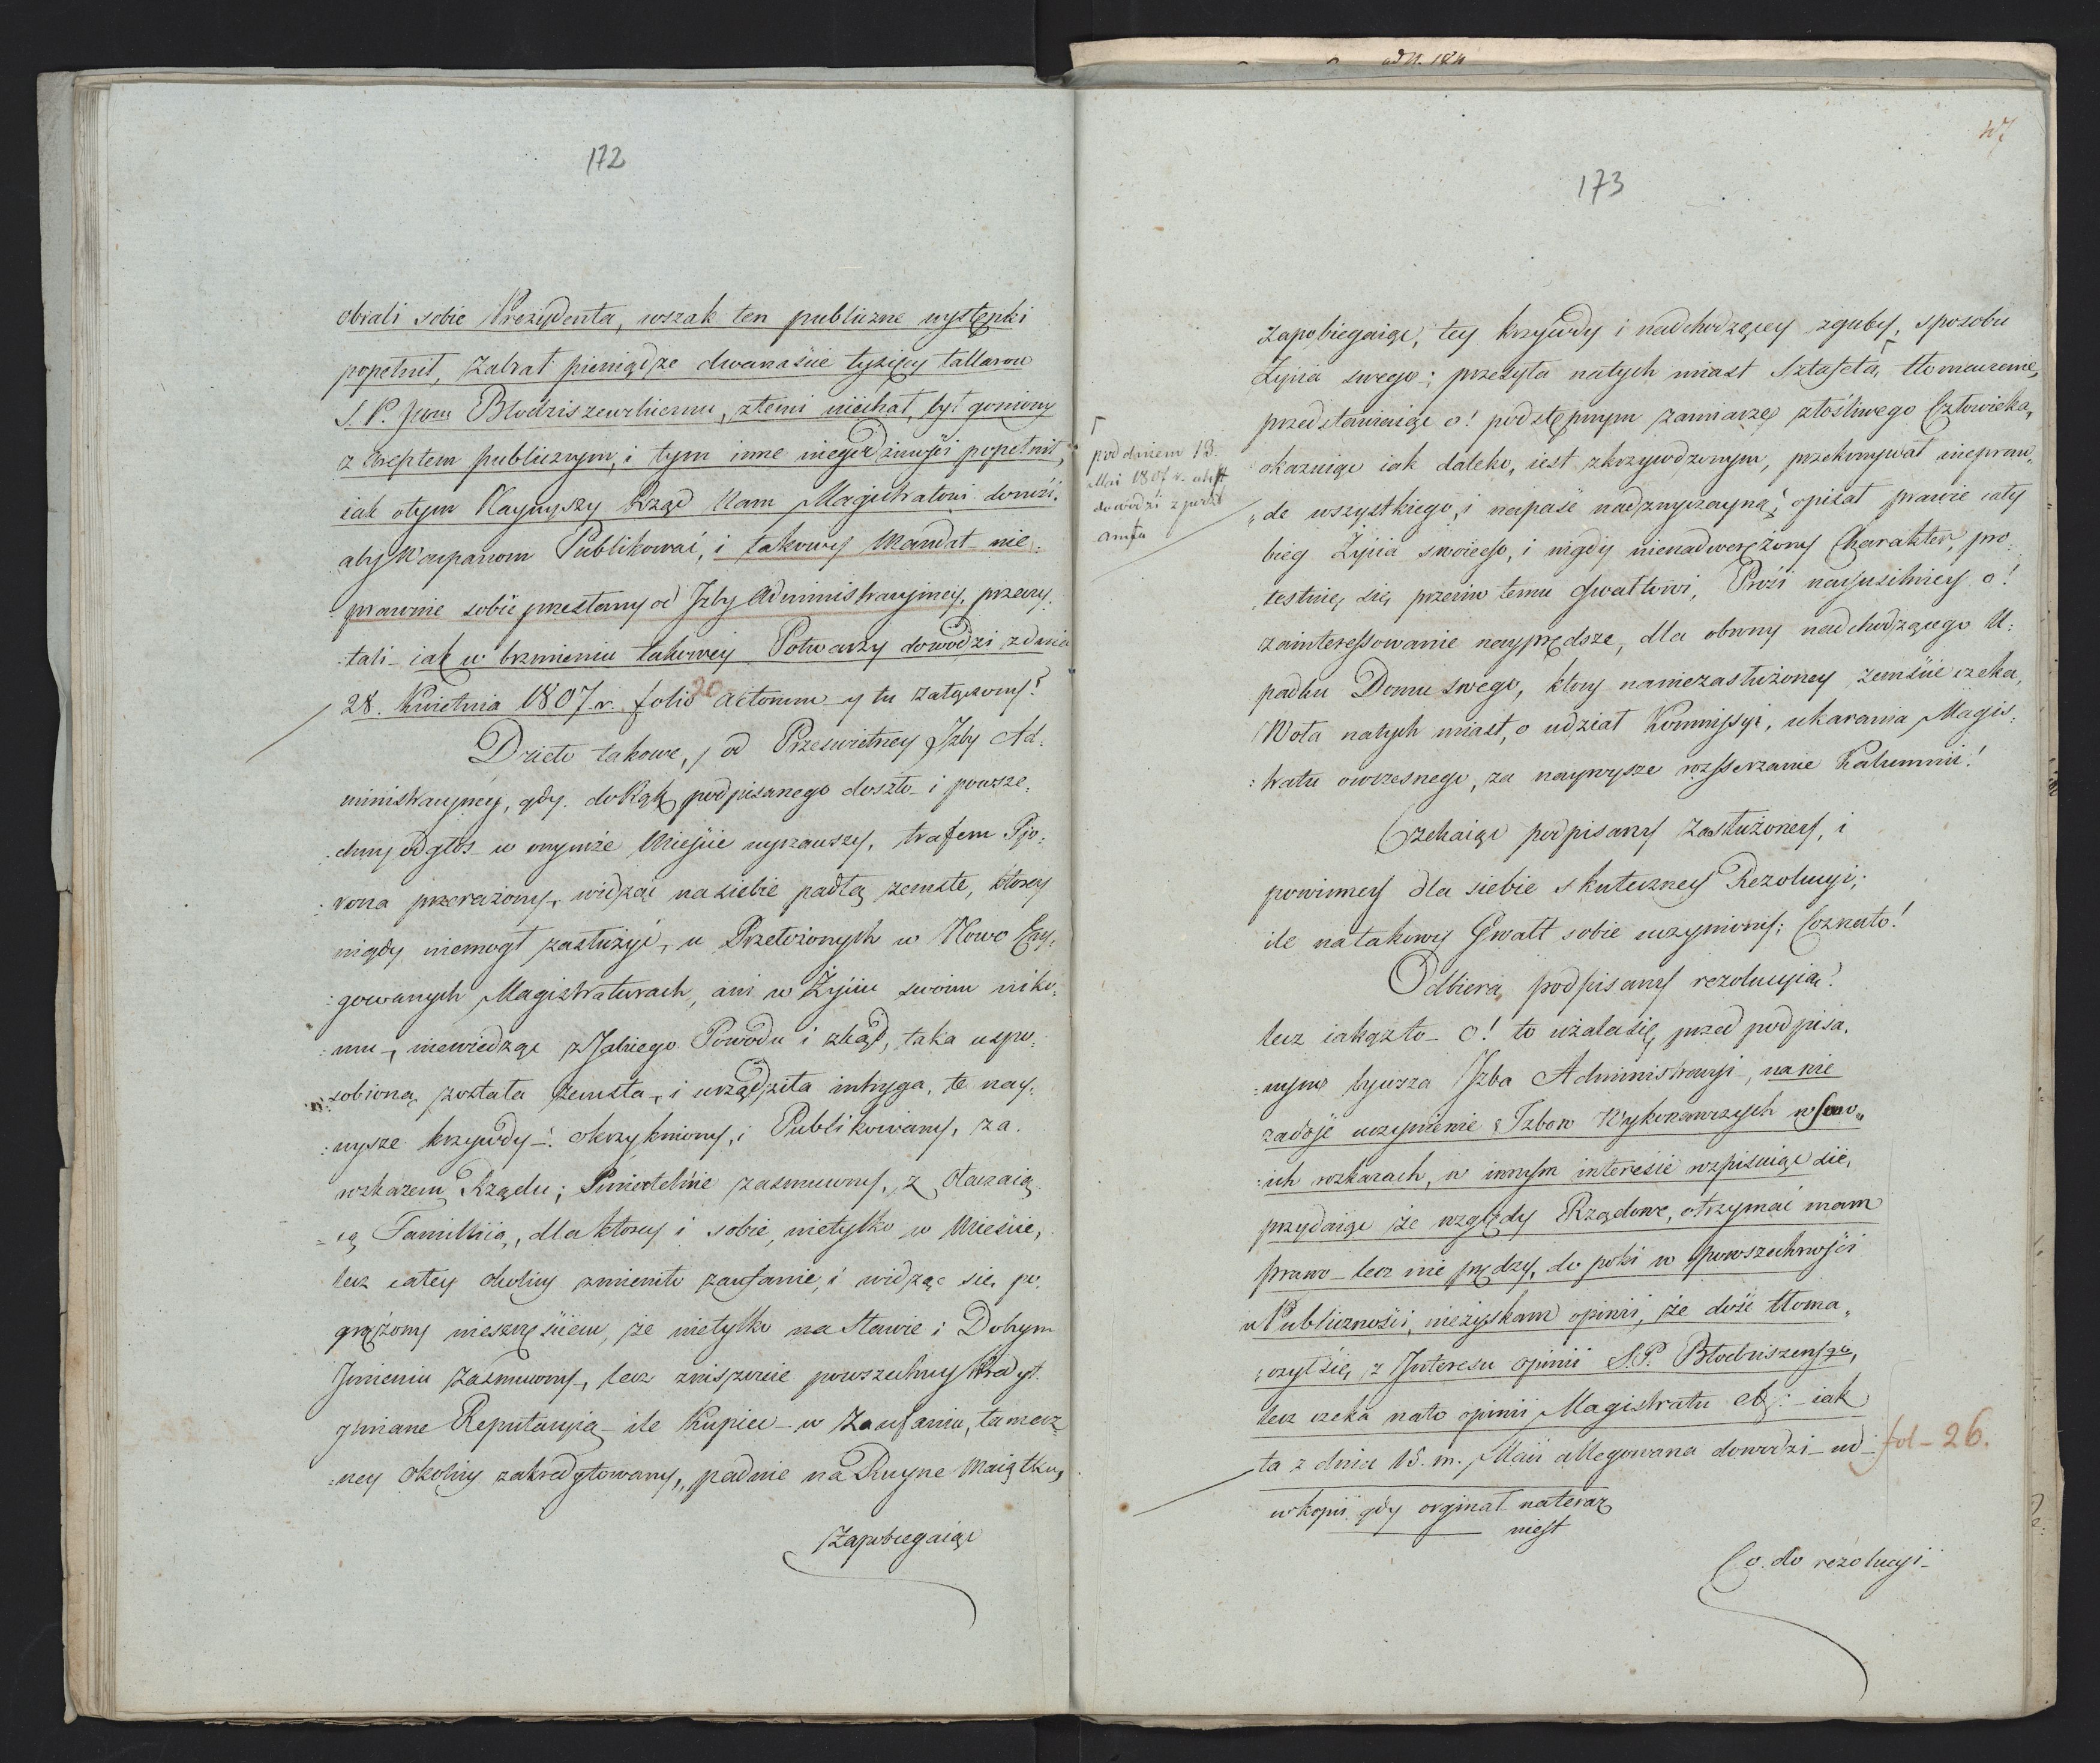 172
obrali sobie Prezydenta, wszak ten publiczne występki
popełnił, Zabrał pieniądze dwanaście tysięcy tallarow
S. P. Błodziszewskiemu, ztemi uiechał, był goniony
z publicznym, i tym inne niegodziwości popełnił,
iak otym Naywyszy Rząd Nam Magistratowi donosi,
aby Waspanom Publikować, i takowy Mandat nie
prawnie sobie przesłany od Izby Administracyiney, przeczy:
:tali – iak w brzmieniu takowey Potwarzy dowodzi zdnia
28. Kwietnia 1807. r. folio 20 actorum y tu załączony?
Dzieło takowe, od Prześwietney Izby Ad:
ministracyiney, gdy do Rąk podpisanego doszło – i powsze:
:chny odgłos w onymże Mieście wyrzawszy, trafem Pio:
:rona przerażony, widząc na siebie padłą zemste, ktorey
nigdy niemogł zasłużyć, u Przełożonych w Nowo Ery:
:gowanych Magistraturach, ani w Życiu swoim niko:
:mu –, niewiedząc z Jakiego Powodu i zkąd, taka uspo:
:sobioną została zemsta –, i urządziła intryga, te nay:
:wysze krzywdy –: okrzykniony, i Publikowany, za
rozkazem Rządu; Śmiertelnie zasmucony, z Otaczaią:
:cą Familiią, dla ktorey i sobie, nietylko w Mieście,
lecz całey okolicy zmieniło zaufanie, i widząc się po:
grążony nieszczęściem, że nietylko na Sławie i Dobrym
Jmieniu Zasmucony –, lecz zniszczenie powszechny Kredyt
zmiane Reputacyią – ile Kupiec – w Zaufaniu, tamecz:
:ney Okolicy zakredytowany, padnie na Ruyne Maiątku,
Zapobiegaiąc
ad N. 184
47
173
Zapobiegaiąc, tey krzywdy i nadchodzącey zguby, sposobu
Życia swego; przesyła natych miast Sztafetą, tłomaczenie,
przedstawiaiąc o! podstępnym zamiarze złośliwego Człowieka,
okazuiąc iak daleko, iest zkrzywdzonym, przekonywał niepraw„
„de wszystkiego, i napaść nadzwyczayną; opisał prawie cały
bieg Życia swoiego, i nigdy nienadweręzony Charakter, pro:
:testuie, się przeciw temu Gwałtowi, Prosi nayusilniey o!
zainteressowanie nayprędsze, dla obrony nadchodzącego U:
padku Domu swego, ktory naniezasłużoney zemście czeka,
Woła natych miast, o udział Kommissyi, ukarania Magis:
:tratu owczesnego, za naywysze rozszerzanie Kalumnii!
pod dniem 13.
Maii 1807 r.
dowodzi z poczt
amtu
Czekaiąc podpisany zasłużoney, i
powinney dla siebie skuteczney Rezolucyi;
ile natakowy Gwałt sobie uczyniony; Coznato!
Odbiera podpisany rezolucyią?
lecz iakążto – O! to użalasię, przed podpisa:
:nym bywsza Izba Administracyi –, na nie
zadość uczynienie Izbow Wykonawczych w swo„
:ich rozkazach, w innym interesie rozpisuiąc się,
przydaiąc że względy Rządowe, otrzymać mam
prawo – lecz nie prędzy, do poki w powszechności
u Publiczności, niezyskam opinii, że dość tłoma„
:czył się, z Interesu opinii S. P. Błodziszewsgo,
lecz czeka nato opinii Magistratu &: – iak
ta z dnia 15. m. Maii allegowana dowodzi – ad – fol – 26.
w kopii gdy orginał nateraz
niest
Co. do rezolucyi –